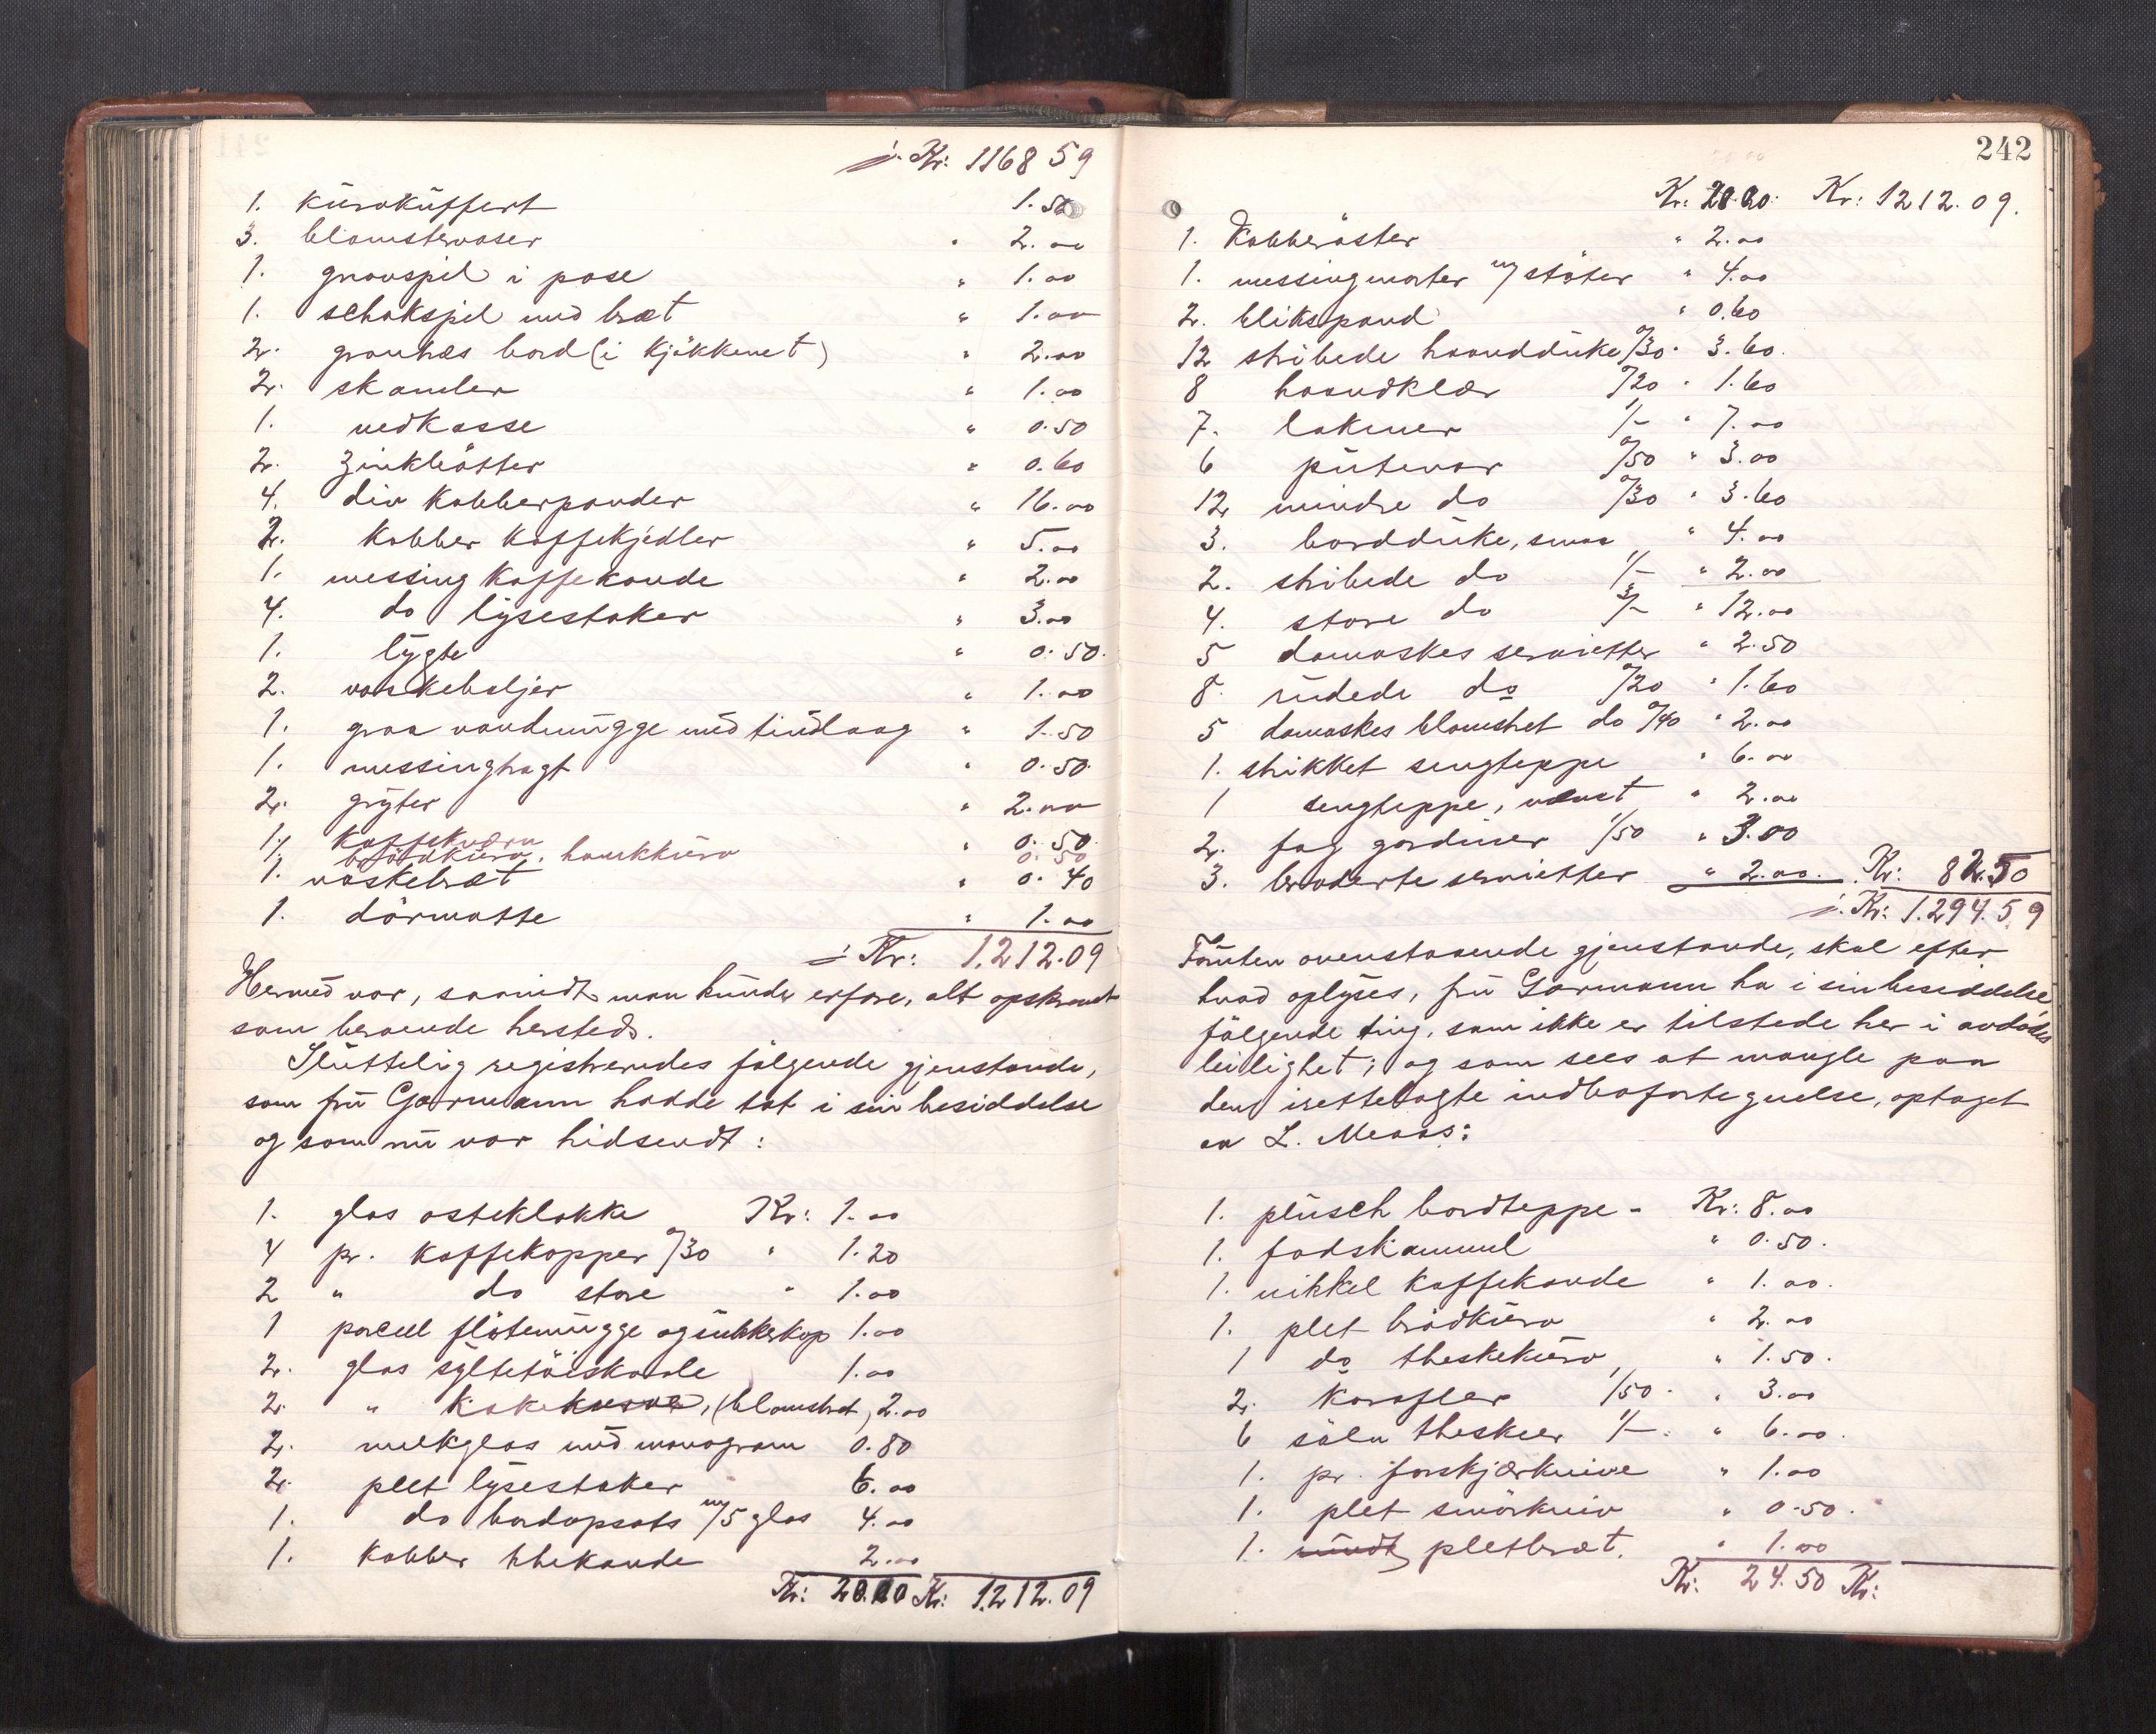 ÷ Kr: 1168 59
1. kurvkuffert 1.50
3. blomstervaser " 2.00
1. gnavspil i pose " 1.00
1. schakspil med bræt " 1.00
2. granetræs bord (i kjøkkenet) " 2.00
2. skamler " 1.00
1. vedkasse " 0.50
2. zinkbøtter " 0.60
4. div kobberpander " 16.00
2. kobber kaffekjedler " 5.00
1. messing kaffekande " 2.00
4. do lysestaker " 3.00
1. lygte " 0.50.
2. vaskebaljer " 1.00
1. graa vandmugge med tindlaag " 1.50
1. messingtragt " 0.50
2. gryter " 2.00
1. kaffekværn " 0.50
1. brødkurv, hankkurv 0.50
1. vaskebræt " 0.40
1. dørmatte " 1.00
÷ Kr: 1.212.09
Hermed var, saavidt man kunde erfare, alt opskrevet
som beroende hersteds.
Sluttelig registreredes følgende gjenstande,
som fru Garmann hadde tat i sin besiddelse
og som nu var hidsendt:
1. glas osteklokke Kr: 1.00
4 pr. kaffekopper 0/30 " 1.20
2 " do store " 1.00
1 porcel fløtemugge og sukkerkop 1.00
2. glas syltetøiskaale 1.00
2. " kakekurve, (blomstret) 2.00
2. melkglas med monogram 0.80
2. plet lysestaker 6.00
1. do bordopsats m/5 glas 4.00
1. kobber thekande 2.00
Kr: 20.00 Kr: 1.212.09
242
Kr: 20.00 Kr: 1212.09.
1. Kobberøster " 2.00
1. messingmorter m/ støter " 4.00
2. blikspand " 0.60
12 stribede haandduke 0/30 " 3.60.
8 haandklær 0/20 " 1.60
7. lakener 1/- " 7.00
6 putevar 0/50 " 3.00
12 mindre do 0/30 " 3.60
3. bordduke, smaa " 4.00
2. stribede do 1/- " 2.00
4. store do 3/- " 12.00
5 damaskes servietter " 2.50
8. rudede do 0/20 " 1.60
5 damaskes blomstret do 0/40 " 2.00
1. strikket sengteppe " 6.00
1 sengteppe, vævet " 2.00
2. fag gardiner 1/50 " 3.00
3. broderte servietter " 2.00. Kr: 82.50
÷ Kr: 1.294.59
Foruten ovenstaaende gjenstande, skal efter
hvad oplyses, fru Garmann ha i sin besiddelse
følgende ting, som ikke er tilstede her i avdødes
leilighet; og som sees at mangle paa
den irettelagte indbofortegnelse, optaget
av L. Meaas:
1. plusch bordteppe - Kr: 8.00
1. fodskammel " 0.50.
1. nikkel kaffekande " 1.00.
1. plet brødkurv " 2.00
1 do theskekurv, " 1.50.
2. karafler 1/50 " 3.00
6 sølv theskeer 1/- " 6.00.
1. pr. forskjærknive " 1.00
1. plet smørkniv " 0.50.
1. rundt pletbræt. " 1.00
Kr: 24.50 Kr: